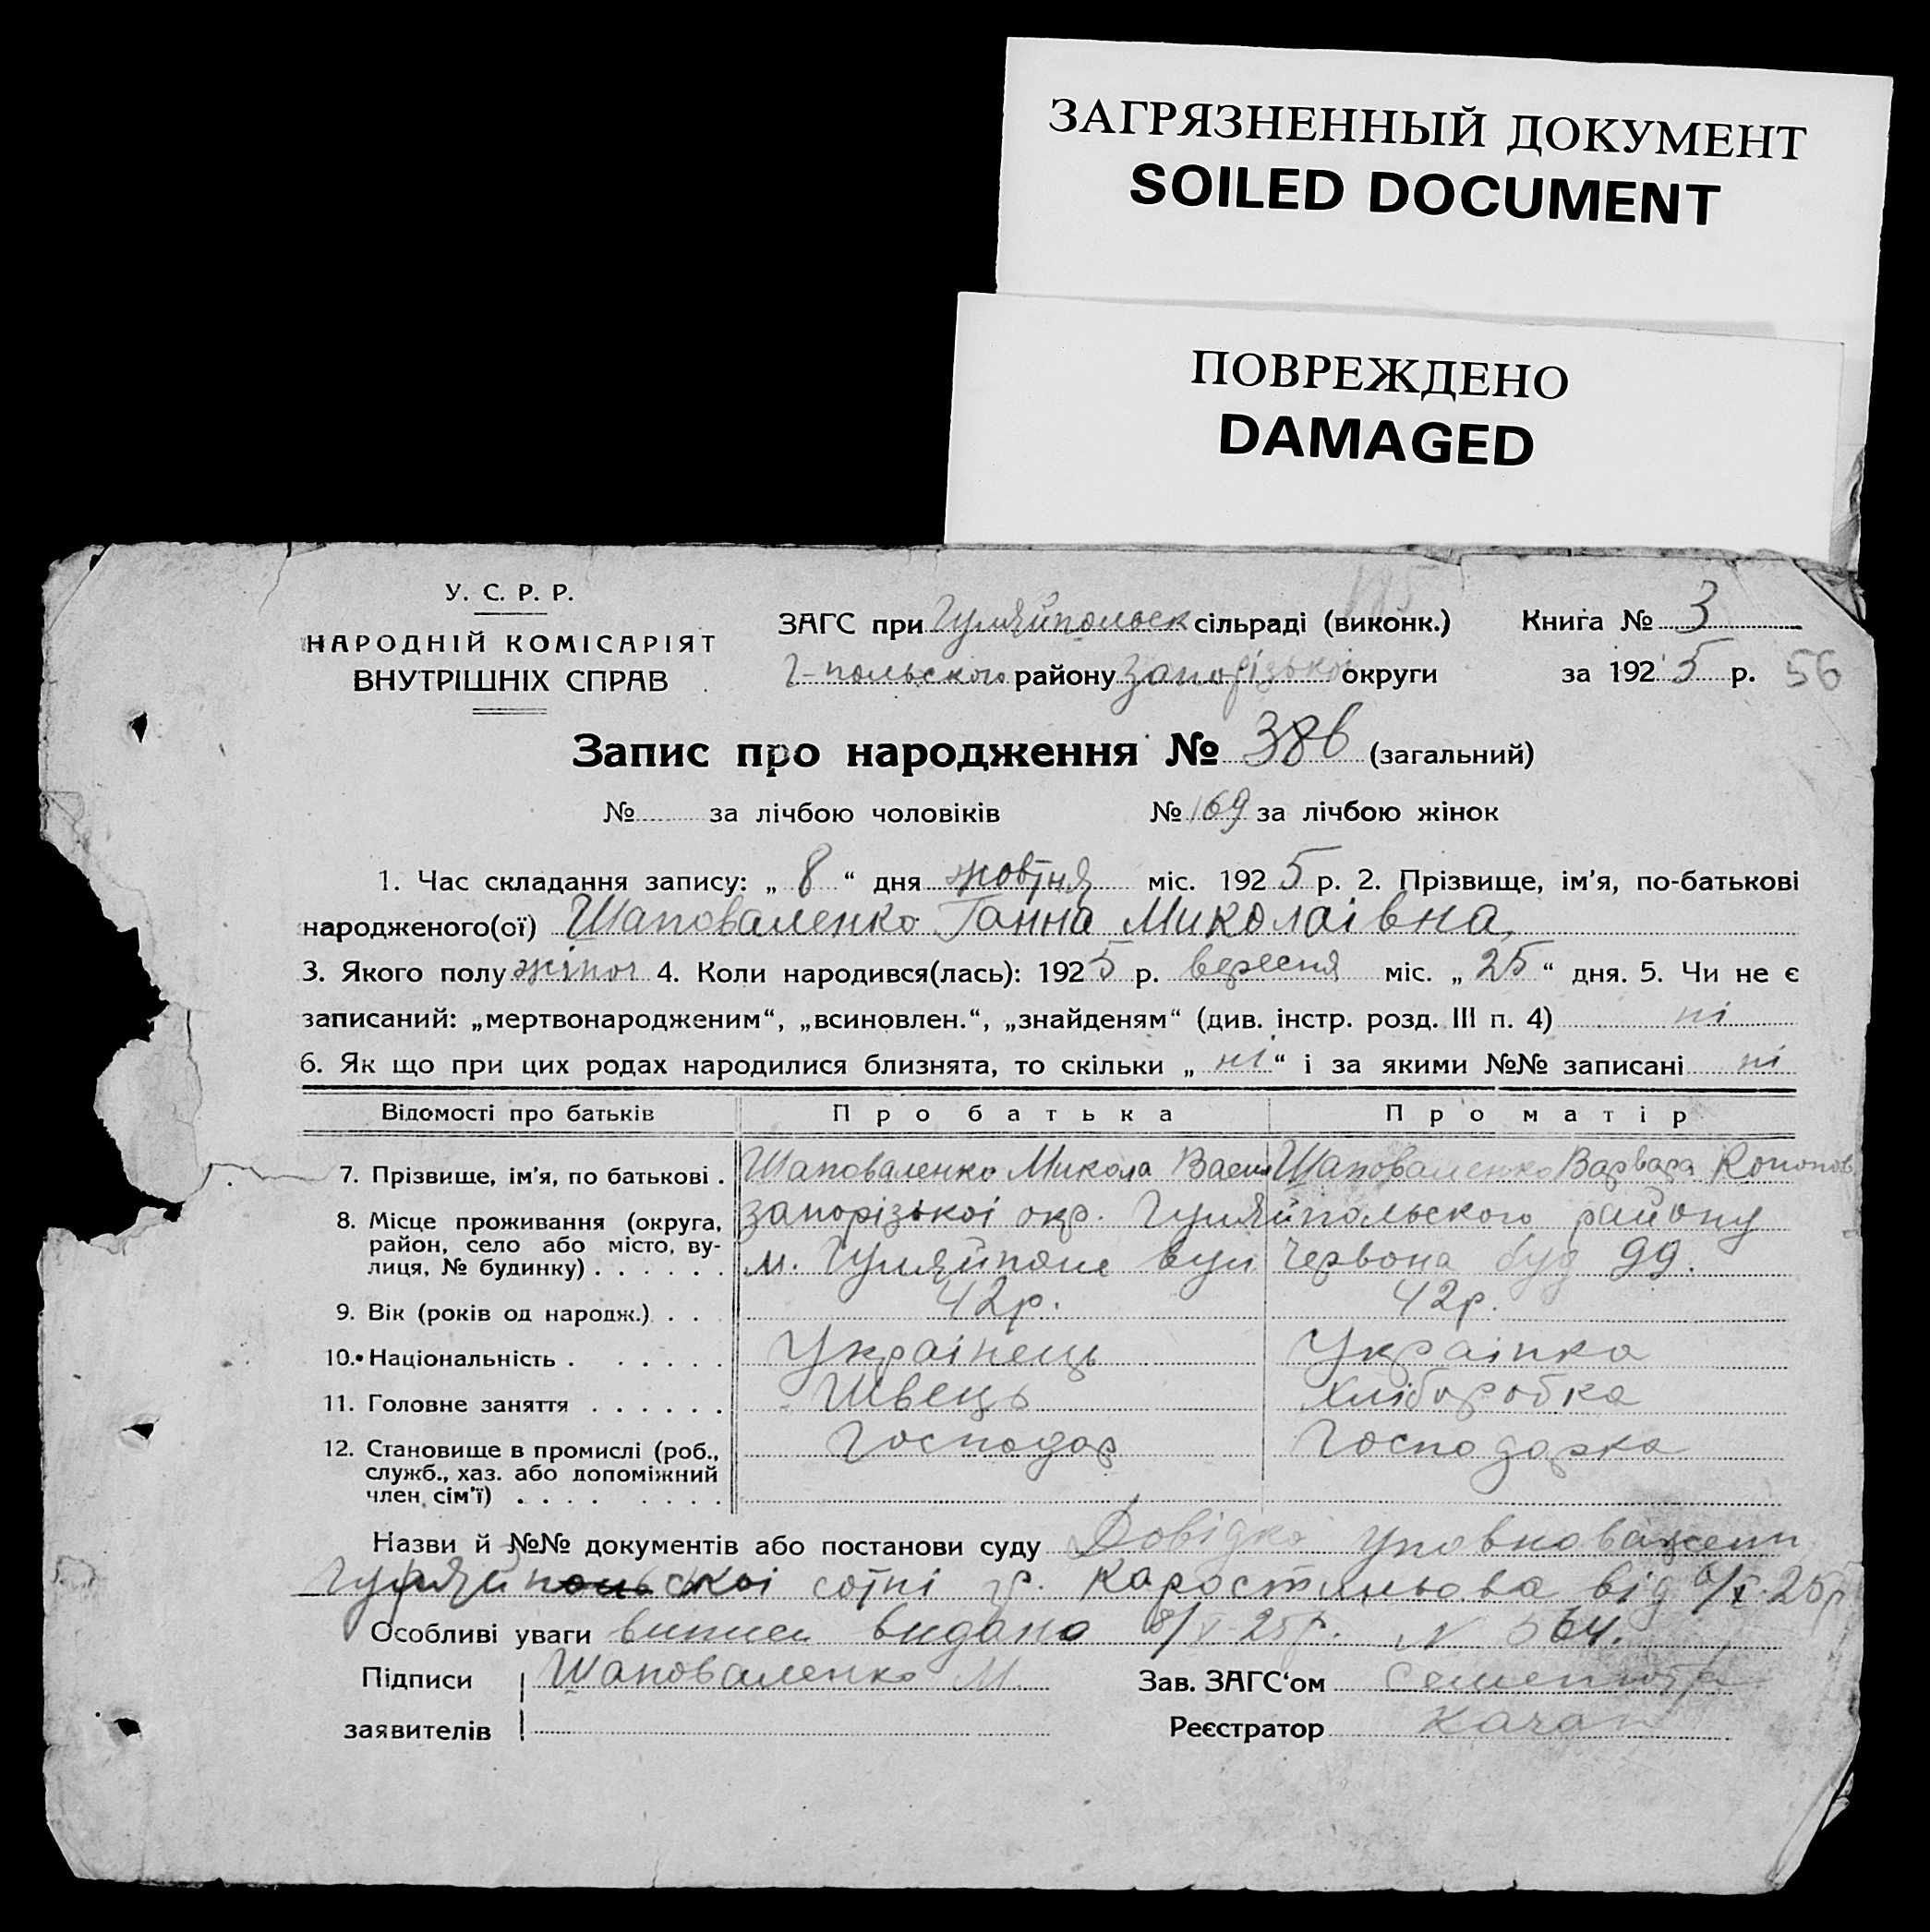 ЗАГРЯЗНЕННЫЙ ДОКУМЕНТ
SOILED DOCUMENT
ПОВРЕЖДЕНО
DAMAGED
У. С. Р. Р.
НАРОДНІЙ КОМІСАРІЯТ
ВНУТРІШНІХ СПРАВ
ЗАГС при Гуляйпольск сільраді (виконк.) Книга № 3
Г-польского району Запорізької округи за 1925 р. 56
Запис про народження № 386 (загальний)
№ за лічбою чоловіків № 169 за лічбою жінок
1. Час складання запису: „ 8 “ дня жовтня міс. 1925 р. 2. Прізвище, ім'я, по-батькові
народженого(ої) Шаповаленко Ганна Миколаівна
3. Якого полу жіноч 4. Коли народився(лась): 1925 р. вересня міс. „ 25 “ дня. 5. Чи не є
записаний: „мертвонародженим“, „всиновлен.“, „знайденям“ (див. інстр. розд. III п. 4) ні
6. Як що при цих родах народилися близнята, то скільки „ ні “ і за якими №№ записані ні
Відомості про батьків Про батька Про матір
7. Прізвище, ім'я, по батькові . Шаповаленко Микола Васил Шаповаленко Варвара Кононов
8. Місце проживання (округа, Запорізької окр. Гуляйпольского району
район, село або місто, ву-
лиця, № будинку) . . . . . . м. Гуляйполе вул Червона буд 99.
9. Вік (років од народж.) . . . 42р. 42р.
10. Національність . . . . . . Украінець Украінка
11. Головне заняття . . . . . . Швець Хліборобка
12. Становище в промислі (роб., Господар Господарка
служб., хаз. або допоміжний
член сім'ї) . . . . . . . .
Назви й №№ документів або постанови суду Довідка уповноважени
Гуляйпольскоі сотні гр. Коростильова від 6/X-25р
Особливі уваги випис видано 8/X-25р. N 564.
Підписи Шаповаленко М. Зав. ЗАГС'ом
заявителів Реєстратор Качан